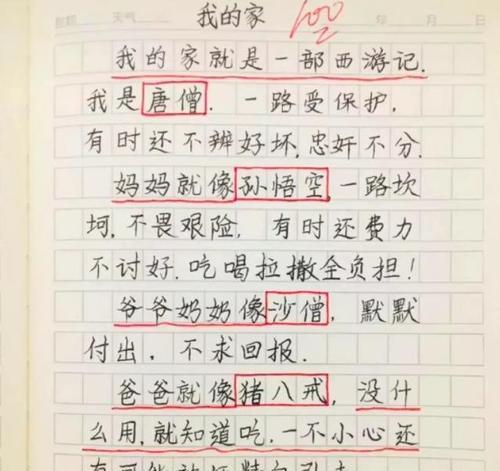 天气 我的家 100 年 月 日
我的家就是一部西游记.
我是唐僧. 一路受保护,
有时还不辨好坏,忠奸不分.
妈妈就像孙悟空,一路坎
坷,不畏艰险, 有时还费力
不讨好.吃喝拉撒全负担!
爷爷奶奶像沙僧, 默默
付出, 不求回报.
爸爸就像猪八戒, 没什
么用,就知道吃.一不小心还